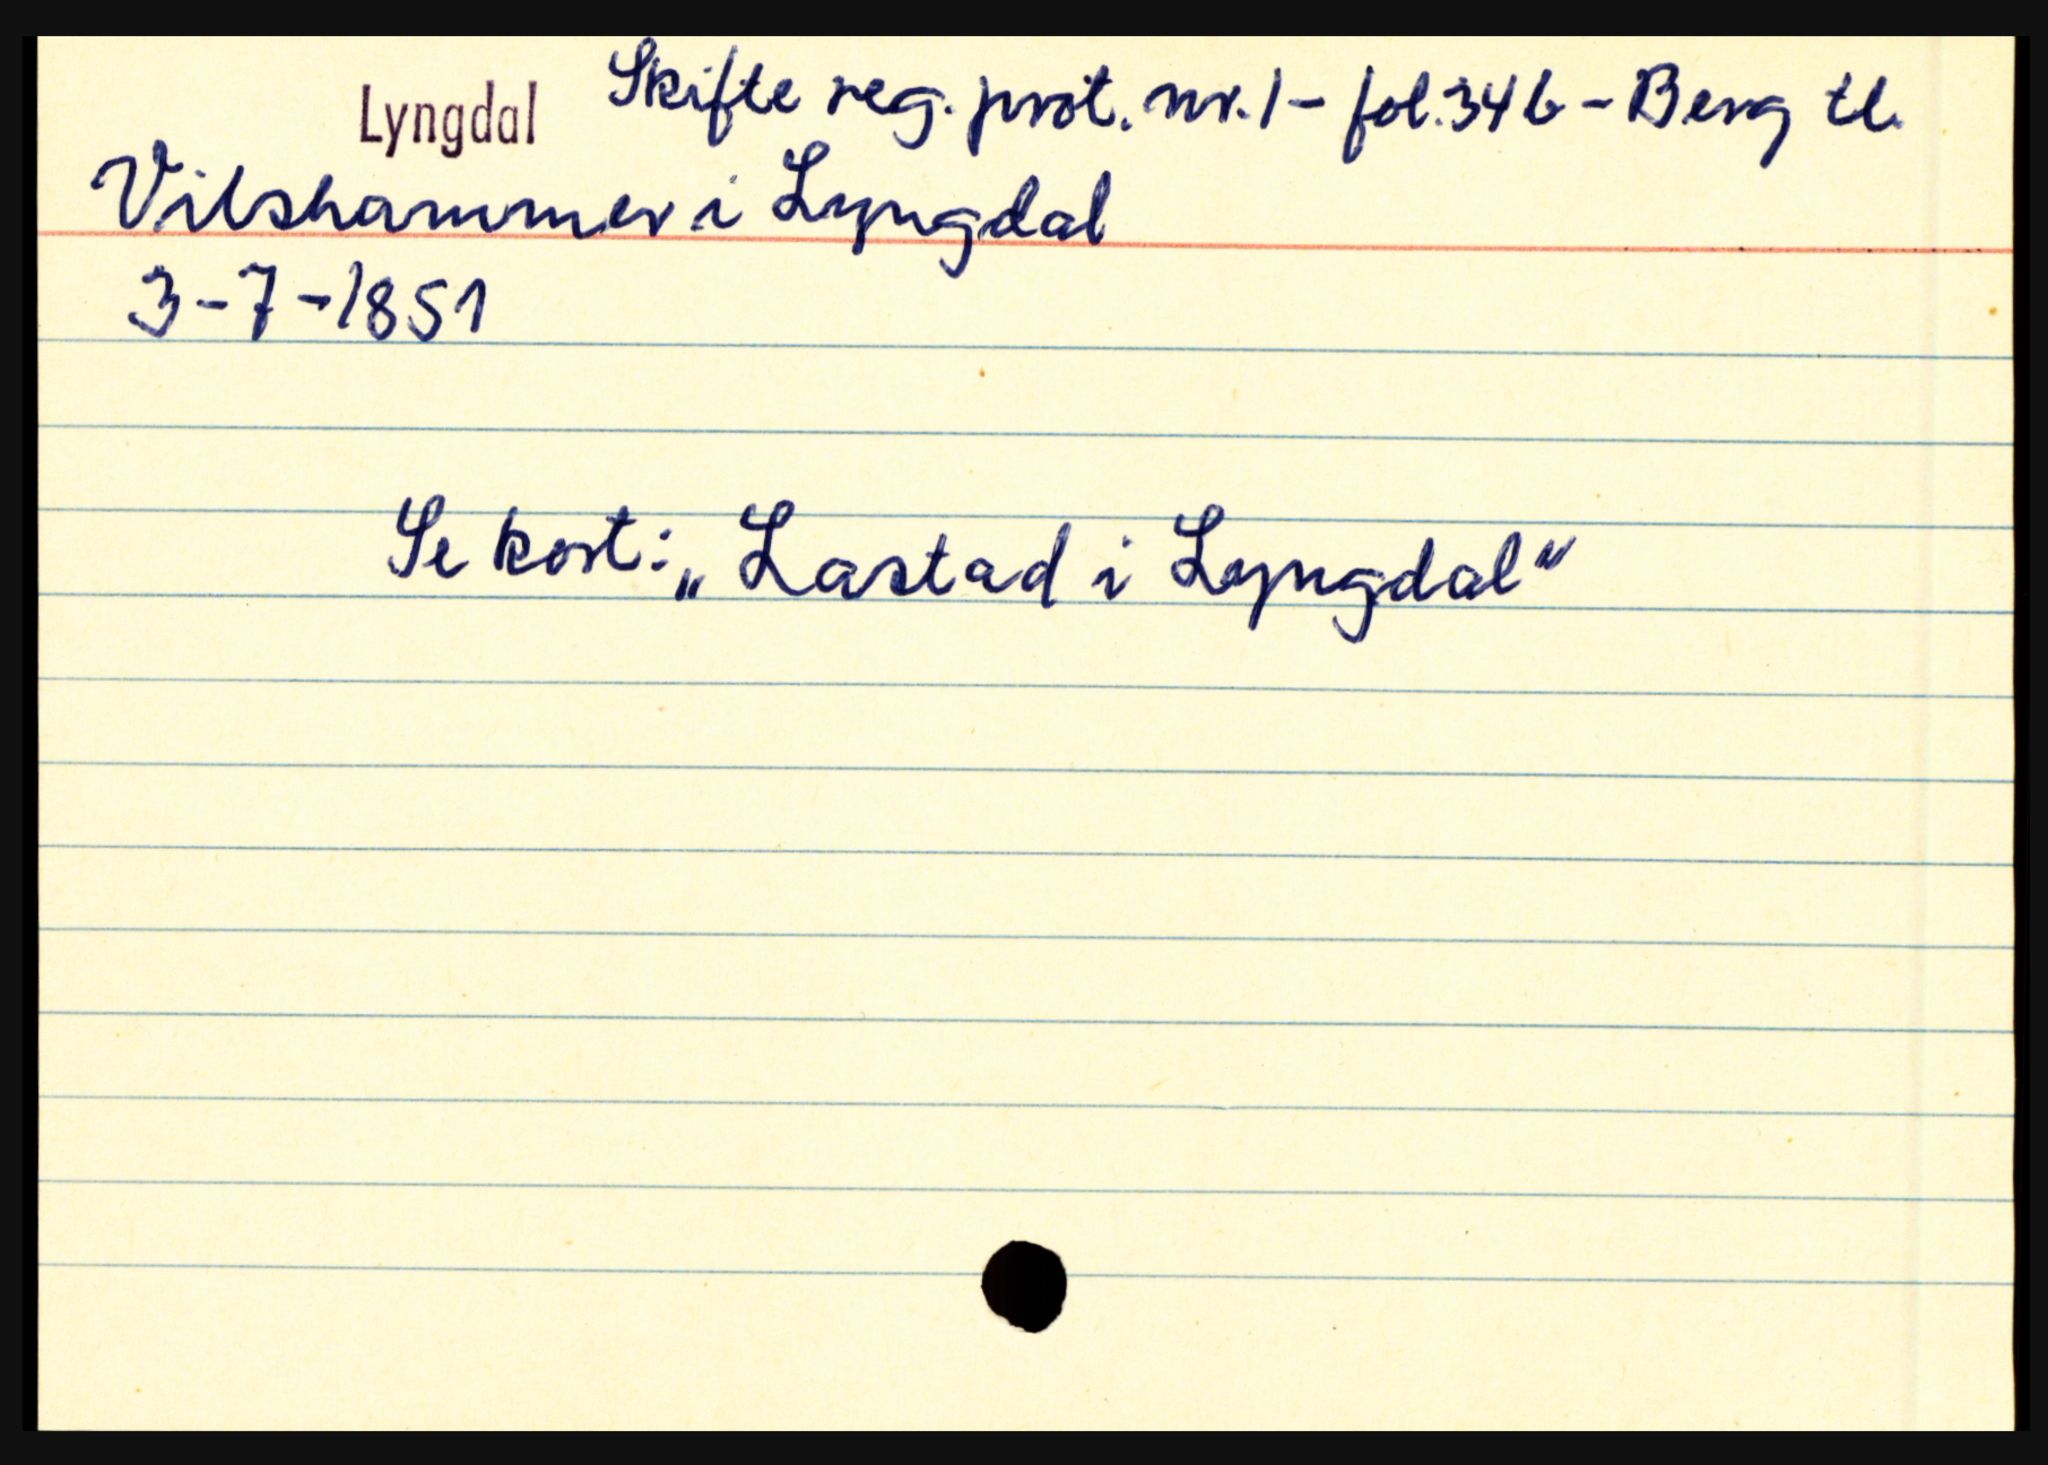 Lyngdal Skifte reg. prot. nr. 1 - fol. 34 b - Berg tl.
Vilshammer i Lyngdal
3-7-1851
Se kort: „Lastad i Lyngdal"